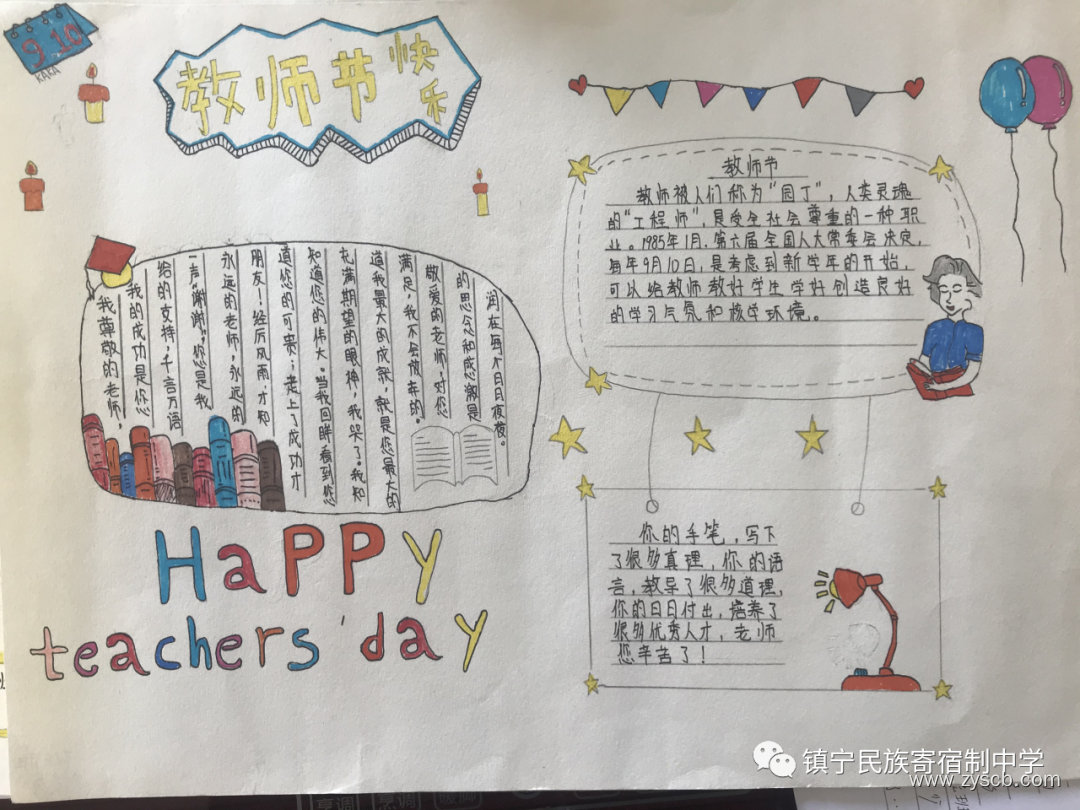 9.10
KAKA
教师节快乐
我尊敬的老师,
我的成功是你您
给的支持,千言万语
一声“谢谢”。您是我
永远的老师,永远的
朋友!经历风雨,才知
道您的可贵;走上了成功才
知道您的伟大。当我回眸看到您
充满期望的眼神,我哭了。我知
道我最大的成就,就是您最大的
满足,我不会放弃的。
敬爱的老师,对您
的思念和感激是
润在每个日日夜夜。
HaPPy
teachers'day
教师节
教师被人们称为“园丁”,人类灵魂
的“工程师”,是受全社会尊重的一种职
业。1985年1月,第六届全国人大常委会决定,
每年9月10日,是考虑到新学年的开始,
可以给教师教好学生学好创造良好
的学习气氛和核学环境。
你的手笔,写下
了很多真理,你的语
言,教导了很多道理,
你的日日付出,培养了
很多优秀人才,老师
您辛苦了!
镇宁民族寄宿制中学
www.zyscb.com